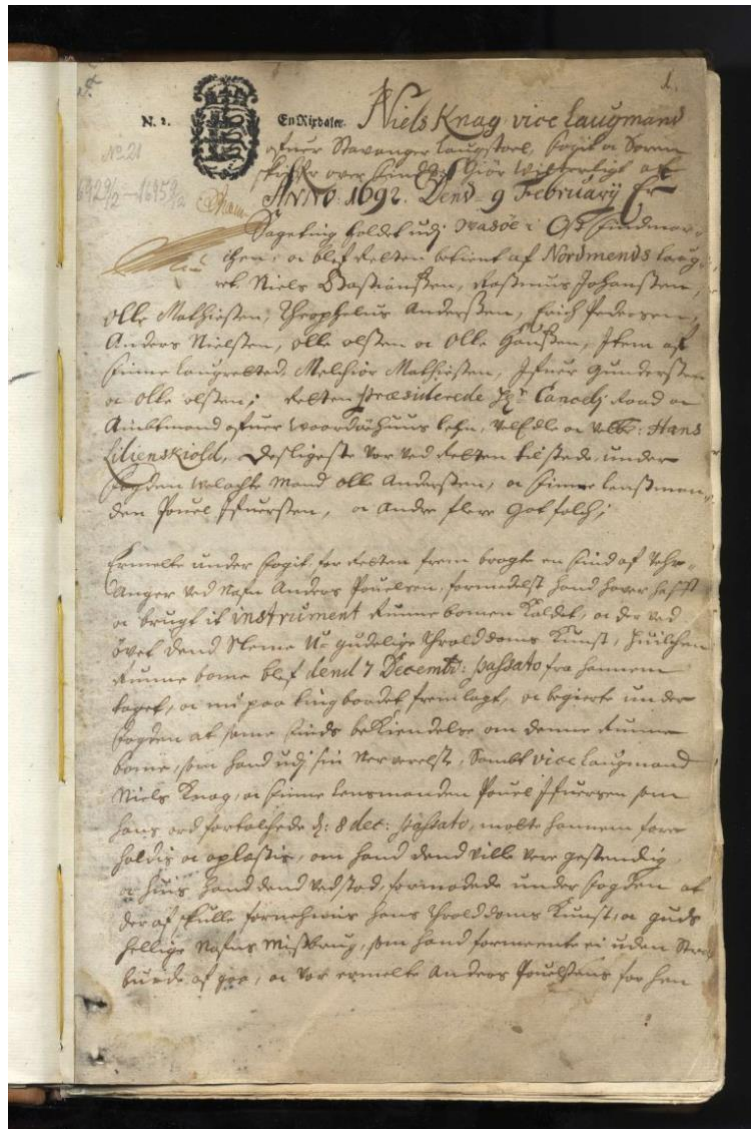 1.
N. 2. En Rixdaler. Niels Knag vice Laugmand
ofuer Stavanger Laugstoel, fogit oc Soren
schifr over findm: Giør witterligt at
ANNO 1692. Dend 9 February Er
No 21
1692 9/2 - 1695 9/2
Sageting holdet udj Wadsöe i Ost findmar-
chen, oc blef retten betient af Nordmends Laug-
ret Niels Bastianssen, Rasmus Johanssen,
Olle Mathiessen, Theophelus Anderssen, Erich Pedersen,
Anders Nielssen, Olle olssen oc Olle Hanssen, Item af
finne laugretted, Melchior Mathiessen, Ifuer Gunderssen
oc Olle olssen; Retten præsiderede Hr Cancelj Raad oc
Ambtmand ofuer Waardøehuus Lehn, Velædle oc Velb: Hans
Lilienskiold, Desligeste var ved retten tilstede, under
fogden Welachte Mand Olle Anderssen, oc finne lensman-
den Pouel Ifuerssen, oc andre flere Got folch;
Ermelte under fogit for Retten frem bragte en find af Tohr-
Anger ved Nafn Anders Pouelsen, formedelst hand haver hafft
oc brugt it instrument Runne bomen kaldet, oc der ved
øvet dend slemme U-gudelige Trolddoms Kunst, huilchen
Runne bome blef dend 7 Decembr: passato fra hannem
taget, oc nu paa tingbordet fremlagt, oc begierte under
fogden at samme finds bekiendelse om denne Runne
bome, som hand udj sin Nerværelse, Sambt vice Laugmand
Niels Knag, oc finne lensmanden Pouel Ifuersen som
hans ord fortolchede d: 8 dec: passato, motte hannem fore
holdis oc oplæssis, om hand dend ville vere gestendig
oc huis hand dend ved stod, formodede under fogden at
der af skulle fornehmis hans Trolddoms Kunst, oc guds
hellige Nafns Missbrug, som hand formeente ei uden Straf
burde af gaa, oc var ermelte Anders Pouelssens for hen